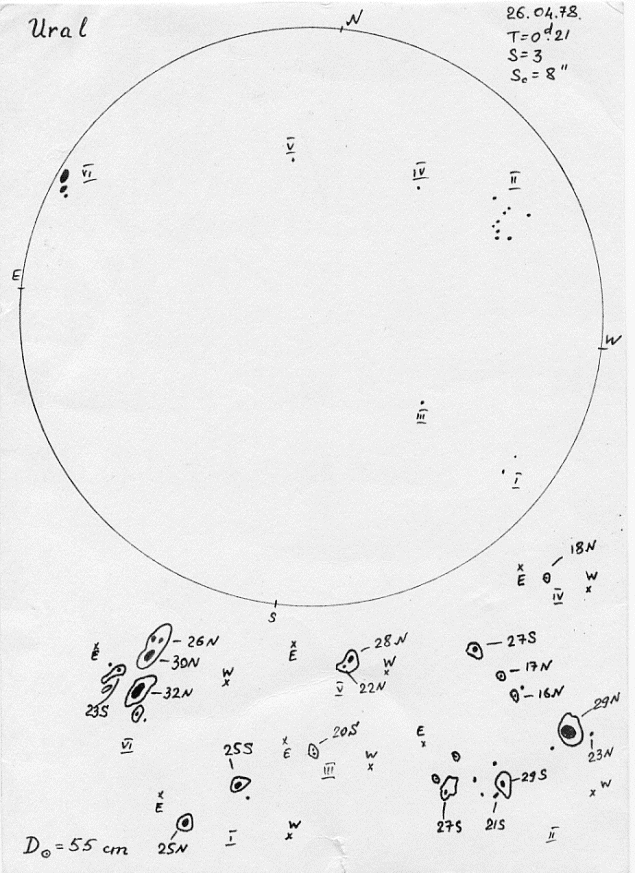 Ural
N
26.04.78.
T=0ᵈ.21
S=3
Sₒ=8"
V
IV
II
VI
E
W
III
I
S
18N
x
E
IV
W
x
x
E
26N
30N
32N
23S
W
x
VI
x
E
28N
22N
W
x
V
27S
17N
16N
29N
23N
x
E
20S
III
W
x
25S
x
E
25N
I
W
x
E
x
27S
21S
29S
II
x W
D⊙=55 cm